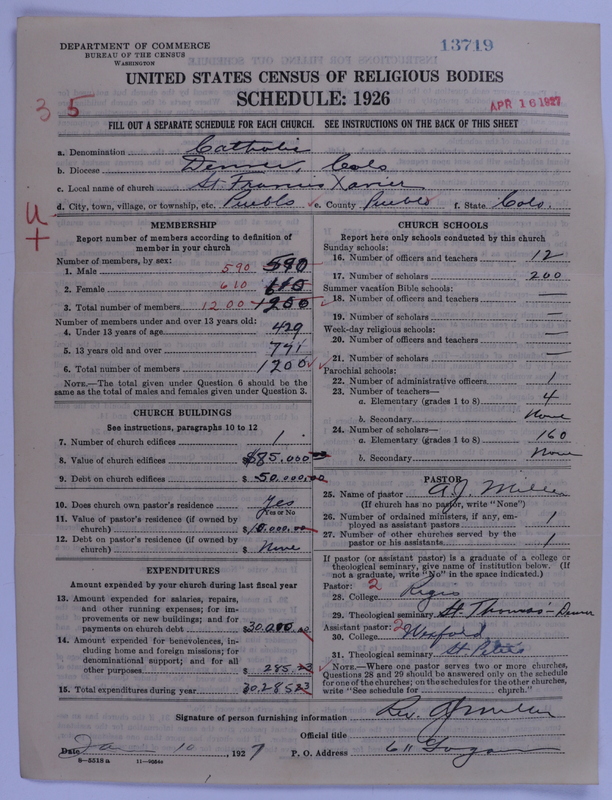 DEPARTMENT OF COMMERCE
BUREAU OF THE CENSUS
WASHINGTON
13719
UNITED STATES CENSUS OF RELIGIOUS BODIES
SCHEDULE: 1926
APR 16 1927
35
FILL OUT A SEPARATE SCHEDULE FOR EACH CHURCH. SEE INSTRUCTIONS ON THE BACK OF THIS SHEET
a. Denomination Catholic
b. Diocese Denver, Colo
c. Local name of church St Francis Xavier
d. City, town, village, or township, etc. Pueblo e. County Pueblo f. State Colo.
MEMBERSHIP
Report number of members according to definition of
member in your church
Number of members, by sex:
1. Male 590 590
2. Female 610
3. Total number of members 1200 1200
Number of members under and over 13 years old:
4. Under 13 years of age 429
5. 13 years old and over 771
6. Total number of members 1200
NOTE.—The total given under Question 6 should be
same as the total of males and females given under Question 3.
CHURCH BUILDINGS
See instructions, paragraphs 10 to 12
7. Number of church edifices 1
8. Value of church edifices $85,000.00
9. Debt on church edifices $50,000.00
10. Does church own pastor's residence Yes
Yes or No
11. Value of pastor's residence (if owned by
church) $10,000.00
12. Debt on pastor's residence (if owned by
church) $ None
EXPENDITURES
Amount expended by your church during last fiscal year
13. Amount expended for salaries, repairs,
and other running expenses; for im-
provements or new buildings; and for
payments on church debt $30,000.00
14. Amount expended for benevolences, in-
cluding home and foreign missions; for
denominational support; and for all
other purposes $285.23
15. Total expenditures during year 30,285.23
CHURCH SCHOOLS
Report here only schools conducted by this church
Sunday schools:
16. Number of officers and teachers 12
17. Number of scholars 200
Summer vacation Bible schools:
18. Number of officers and teachers —
19. Number of scholars —
Week-day religious schools:
20. Number of officers and teachers —
21. Number of scholars —
Parochial schools:
22. Number of administrative officers 1
23. Number of teachers—
a. Elementary (grades 1 to 8) 4
b. Secondary None
24. Number of scholars—
a. Elementary (grades 1 to 8) 160
b. Secondary None
PASTOR
25. Name of pastor A.J. Miller
(If church has no pastor, write "None")
26. Number of ordained ministers, if any, em-
ployed as assistant pastors 1
27. Number of other churches served by the
pastor or his assistants 1
If pastor (or assistant pastor) is a graduate of a college or
theological seminary, give name of institution below. (If
not a graduate, write "No" in the space indicated.)
Pastor: 2
28. College Regis
29. Theological seminary St Thomas - Denver
Assistant pastor: 2
30. College Wexford
31. Theological seminary St Peters
NOTE.—Where one pastor serves two or more churches,
Questions 28 and 29 should be answered only on the schedule
for one of the churches; on the schedules for the other churches,
write "See schedule for church."
Signature of person furnishing information Rev. AJ Miller
Official title
Date Jan 10 1927 P. O. Address 611
8—5518a